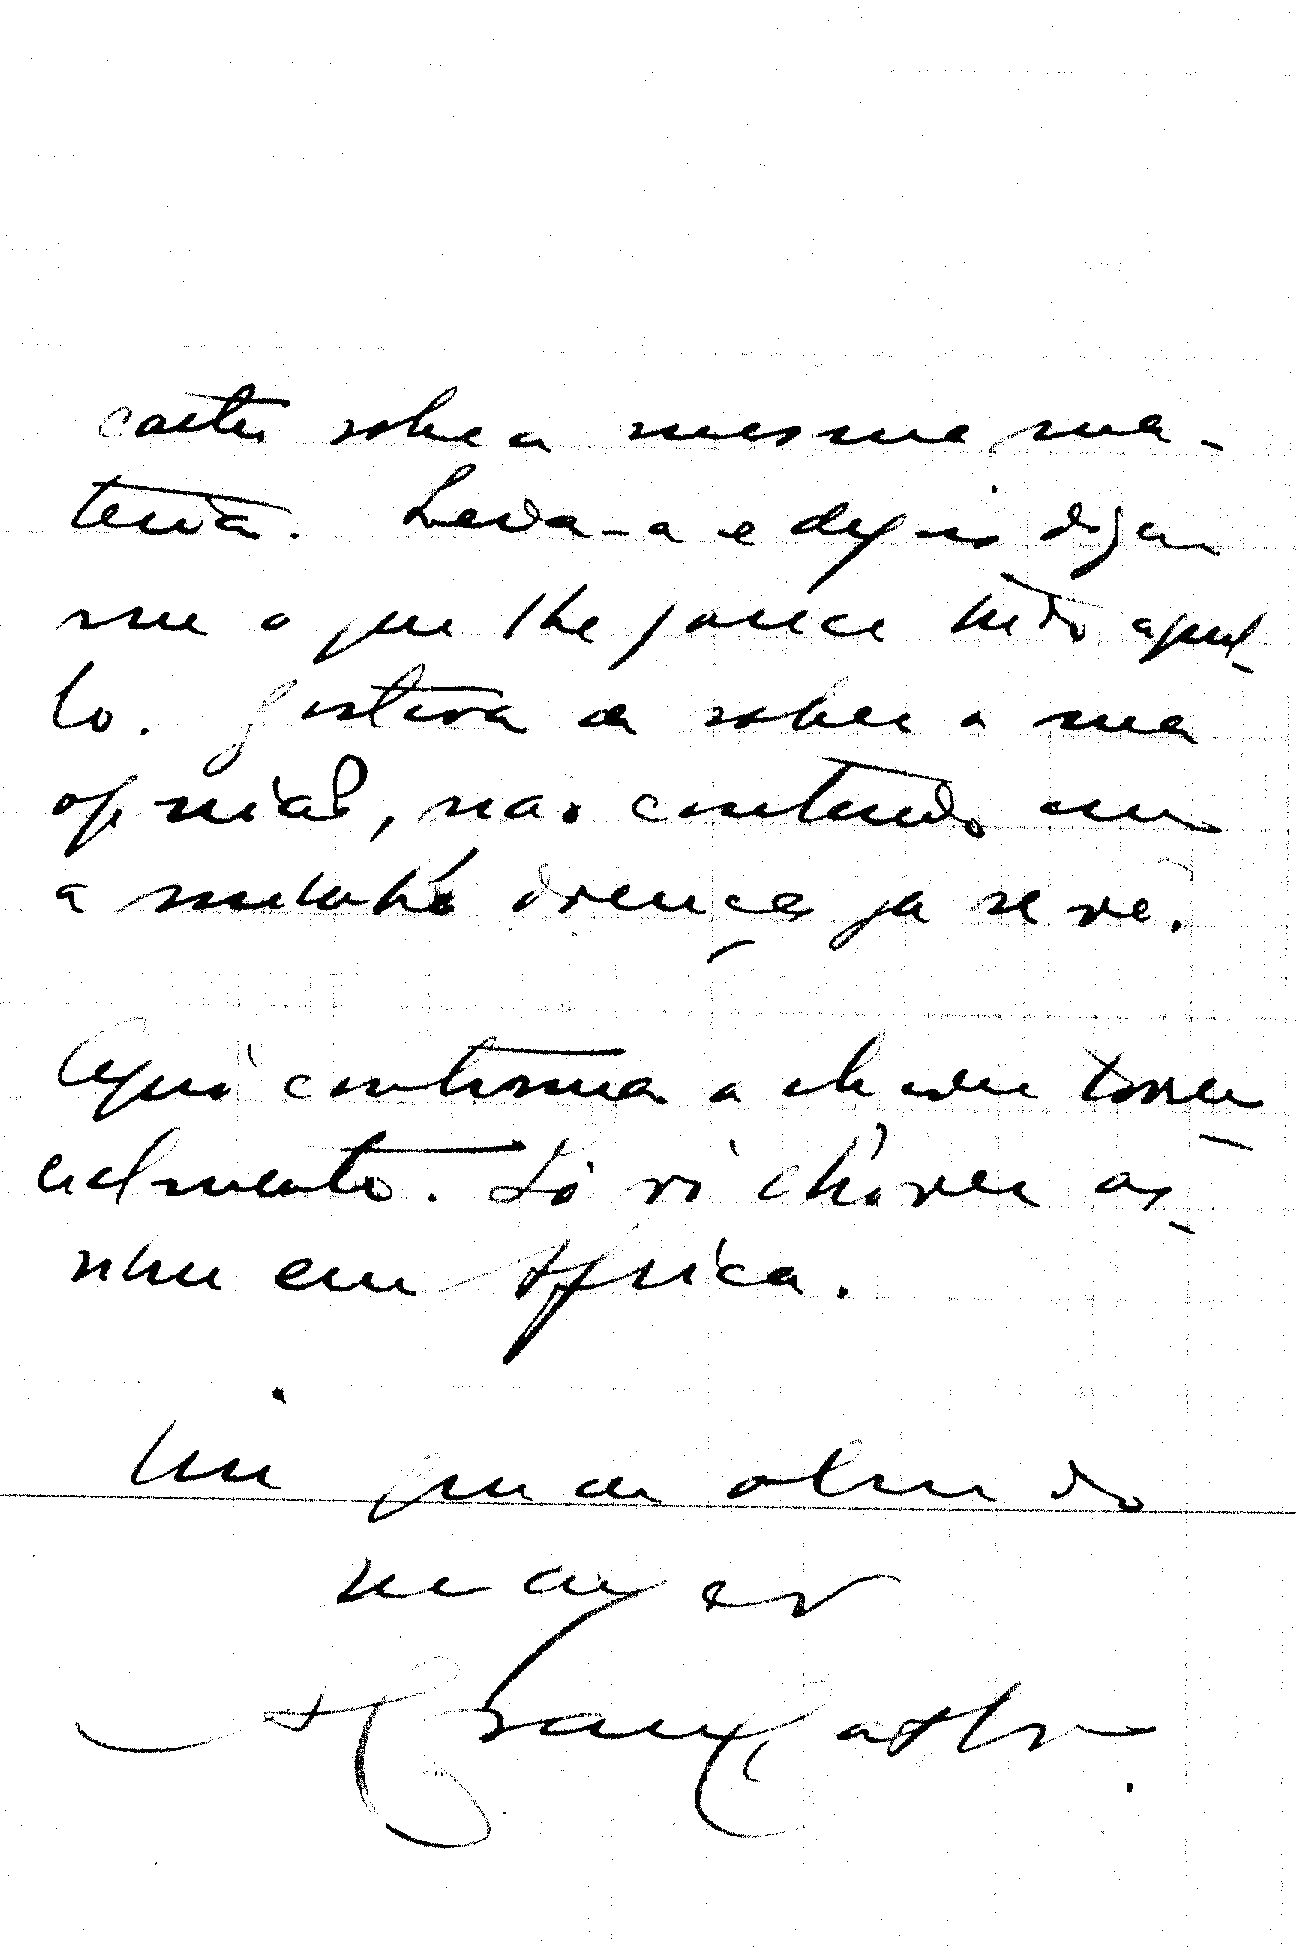 cartas sobre a mesma ma-
teria. Leva-a e depois diga
me o que lhe parece tudo aquil-
lo. Gostava de saber a sua
opinião, não contendo com
a minha doença já se vê.
Aqui continua a chover torren-
cialmente. Só vi chover as-
sim em Africa.
Um grande abraço do